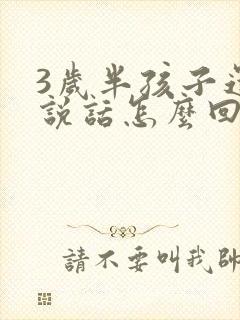 3歲半孩子還
說話怎麼回
請不要叫我帥